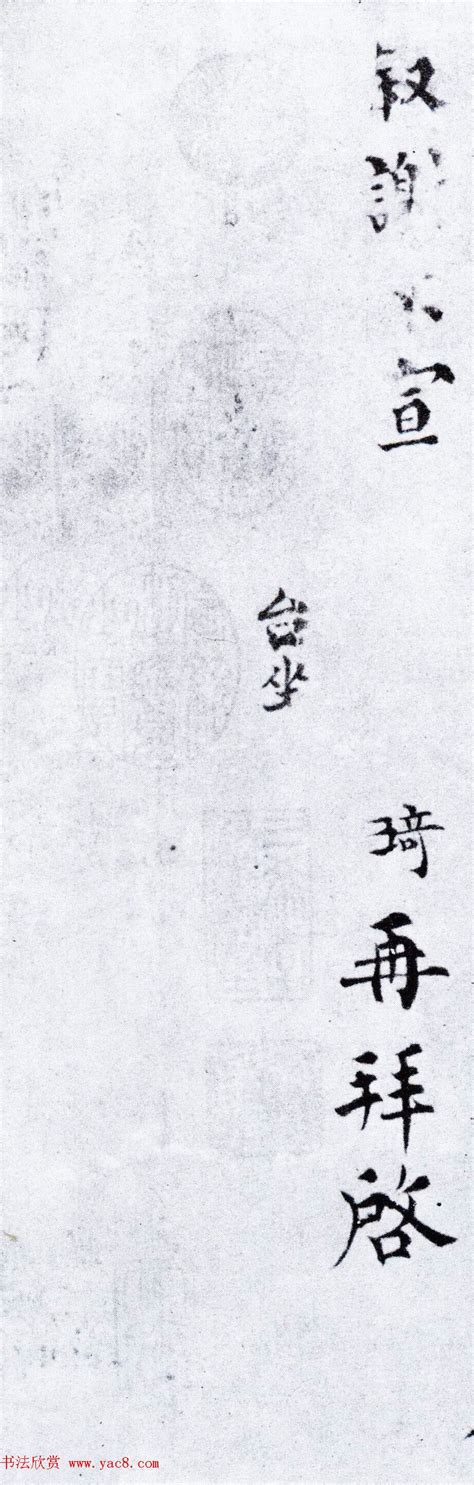 叙謝不宣
琦再拜啓
台坐
书法欣赏 www.yac8.com